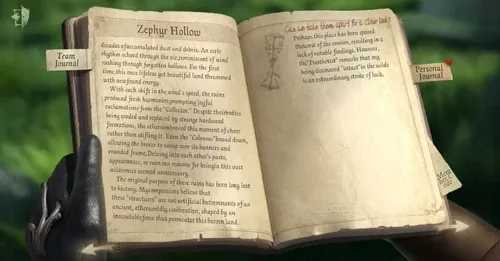 Zephyr Hollow
Team
Journal
decades of accumulated dust and debris. An eerie
rhythm echoed through the air, reminiscent of wind
rushing through forgotten hollows. For the first
time, this once lifeless yet beautiful land thrummed
with newfound energy.
With each shift in the wind's speed, the ruins
produced fresh harmonies, prompting joyful
exclamations from the "Collector." Despite their edges
being eroded and replaced by strange hardened
formations, the
rather than stifling it. Even the "Colossus" bowed down,
allowing the breeze to
rounded frame. Delving into each other's pasts,
appearances, or even our reasons for being in this vast
wilderness seemed unnecessary.
The original purpose of these ruins has been long lost
to history. My companions believe that
these "structures" are not artificial but remnants of an
ancient, otherworldly civilization, shaped by an
force that permeates this barren land.
Can we take them apart for a closer look?
Perhaps this place has been spared
the worst of the erosion, resulting in a
lack of notable findings. However,
the remarks that my
being deemed "intact" in the wilds
is an extraordinary stroke of luck.
Personal
Journal